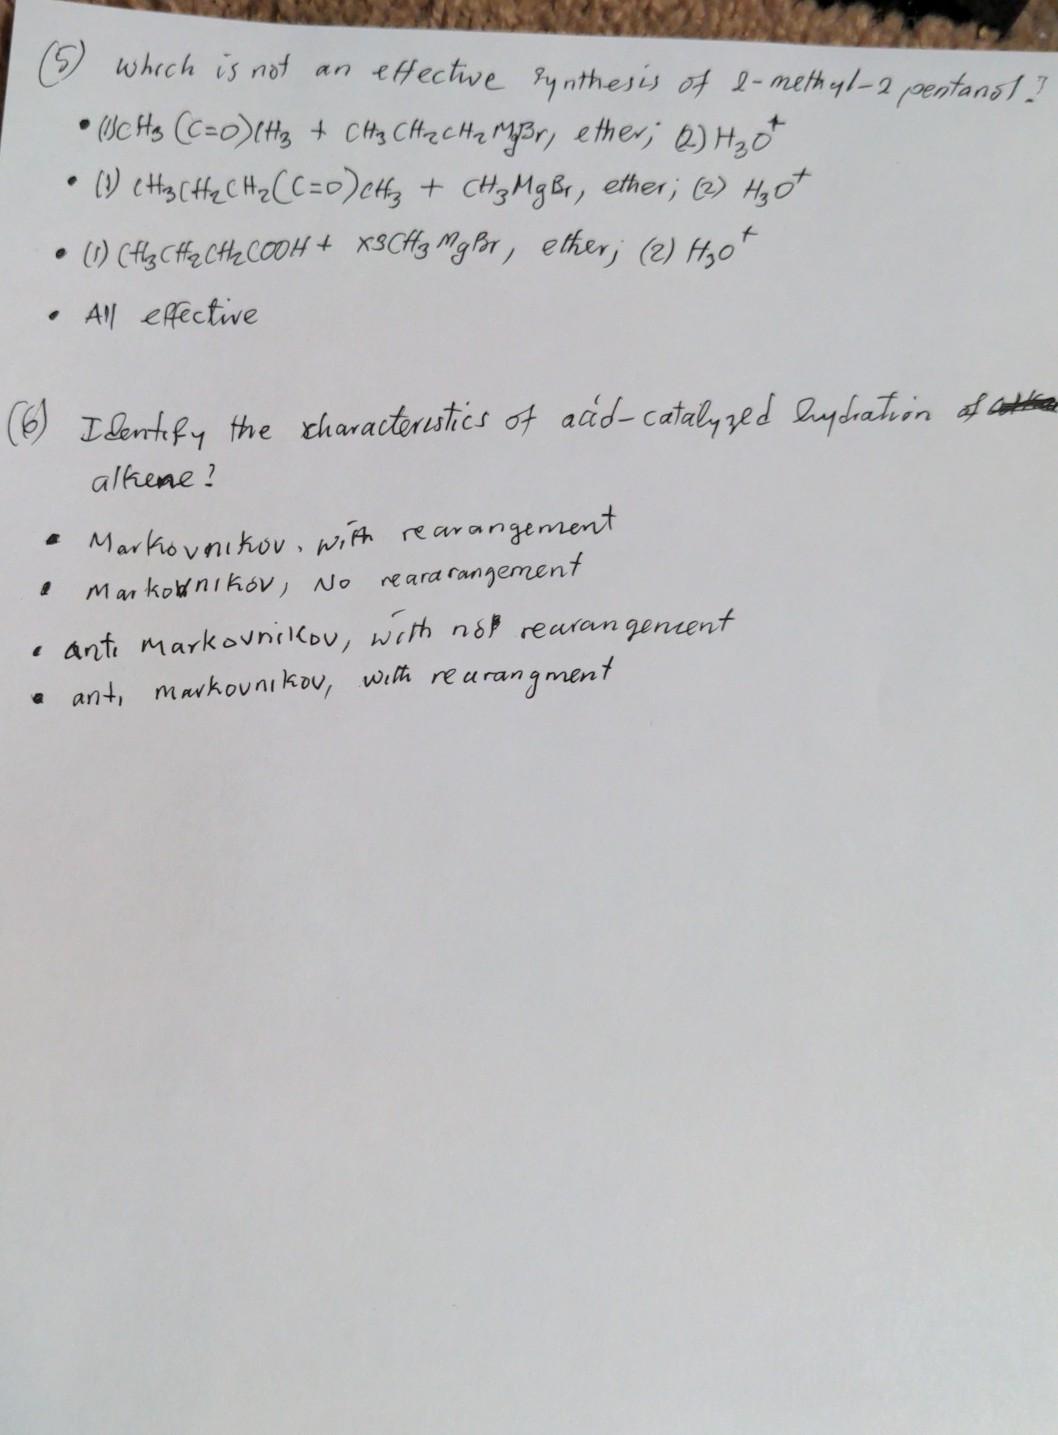 (5) which is not an effective synthesis of 2-methyl-2 pentanol?
• (1) CH3 (C=O)CH3 + CH3CH2CH2MgBr, ether; (2) H3O+
• (1) CH3CH2CH2(C=O)CH3 + CH3MgBr, ether; (2) H3O+
• (1) CH3CH2CH2COOH + x3CH3MgBr, ether; (2) H3O+
• All effective
(6) Identify the characteristics of acid-catalyzed hydration of
alkene?
• Markovnikov, with rearangement
• Markovnikov, No reararangement
• anti Markovnikov, with not rearangement
• anti markovnikov, with rearangment